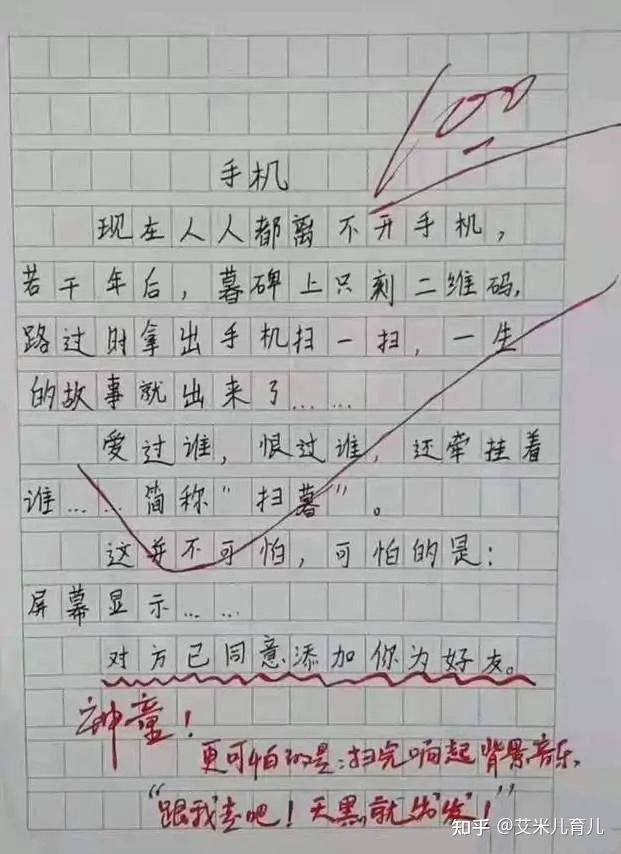 100
手机
现在人人都离不开手机，
若干年后，暮碑上只刻二维码，
路过时拿出手机扫一扫，一生
的故事就出来了……
爱过谁，恨过谁，还牵挂着
谁……简称“扫暮”。
这并不可怕，可怕的是：
屏幕显示……
对方已同意添加你为好友。
神童！
更可怕的是：扫完响起背景音乐，
“跟我去吧！天黑就出发！”
知乎 @艾米儿育儿